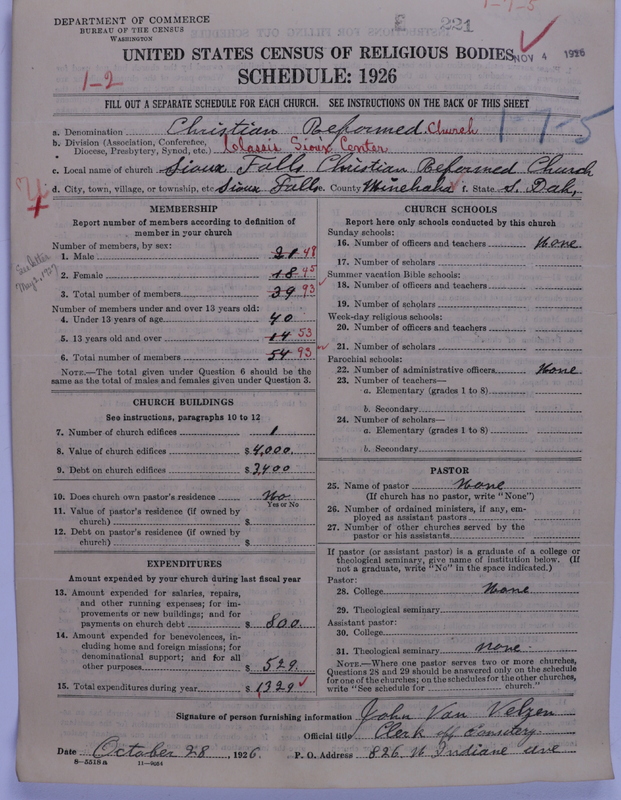 1-7-5
DEPARTMENT OF COMMERCE
BUREAU OF THE CENSUS
WASHINGTON
E 221
NOV 4 1926
UNITED STATES CENSUS OF RELIGIOUS BODIES
SCHEDULE: 1926
1-2
FILL OUT A SEPARATE SCHEDULE FOR EACH CHURCH. SEE INSTRUCTIONS ON THE BACK OF THIS SHEET
1-7-5
a. Denomination Christian Reformed Church
b. Division (Association, Conference, Diocese, Presbytery, Synod, etc.) Classis Sioux Center
c. Local name of church Sioux Falls Christian Reformed Church
d. City, town, village, or township, etc Sioux Falls e. County Minehaha f. State S. Dak,
See letter
May 2, 1927
MEMBERSHIP
Report number of members according to definition of
member in your church
Number of members, by sex:
1. Male 21 48
2. Female 18 45
3. Total number of members 39 93
Number of members under and over 13 years old:
4. Under 13 years of age 40
5. 13 years old and over 14 53
6. Total number of members 54 93
NOTE.—The total given under Question 6 should be
same as the total of males and females given under Question 3.
CHURCH BUILDINGS
See instructions, paragraphs 10 to 12
7. Number of church edifices 1
8. Value of church edifices $4,000.
9. Debt on church edifices $3,400
10. Does church own pastor's residence No
Yes or No
11. Value of pastor's residence (if owned by
church) $
12. Debt on pastor's residence (if owned by
church) $
EXPENDITURES
Amount expended by your church during last fiscal year
13. Amount expended for salaries, repairs,
and other running expenses; for im-
provements or new buildings; and for
payments on church debt $ 800.
14. Amount expended for benevolences, in-
cluding home and foreign missions; for
denominational support; and for all
other purposes $ 529.
15. Total expenditures during year $1329
CHURCH SCHOOLS
Report here only schools conducted by this church
Sunday schools:
16. Number of officers and teachers None
17. Number of scholars
Summer vacation Bible schools:
18. Number of officers and teachers
19. Number of scholars
Week-day religious schools:
20. Number of officers and teachers
21. Number of scholars
Parochial schools:
22. Number of administrative officers None
23. Number of teachers—
a. Elementary (grades 1 to 8)
b. Secondary
24. Number of scholars—
a. Elementary (grades 1 to 8)
b. Secondary
PASTOR
25. Name of pastor None
(If church has no pastor, write "None")
26. Number of ordained ministers, if any, em-
ployed as assistant pastors
27. Number of other churches served by the
pastor or his assistants
If pastor (or assistant pastor) is a graduate of a college or
theological seminary, give name of institution below. (If
not a graduate, write "No" in the space indicated.)
Pastor:
28. College None
29. Theological seminary
Assistant pastor:
30. College
31. Theological seminary none.
NOTE.—Where one pastor serves two or more churches,
Questions 28 and 29 should be answered only on the schedule
for one of the churches; on the schedules for the other churches,
write "See schedule for church."
Signature of person furnishing information John Van Velzen
Official title Clerk off Consistory
Date October 28, 1926. P. O. Address 826 N Indiane ave
8-5518a 11-9054